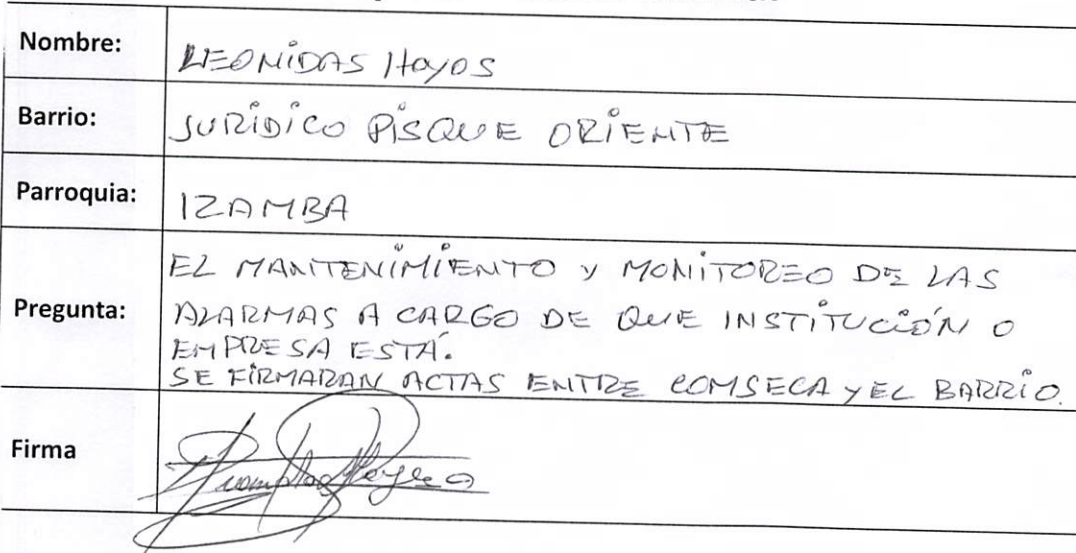 Nombre: LEONIDAS HOYOS
Barrio: JURÍDICO PISQUE ORIENTE
Parroquia: IZAMBA
Pregunta: EL MANTENIMIENTO Y MONITOREO DE LAS
ALARMAS A CARGO DE QUE INSTITUCIÓN O
EMPRESA ESTÁ.
SE FIRMARAN ACTAS ENTRE COMSECA Y EL BARRIO.
Firma